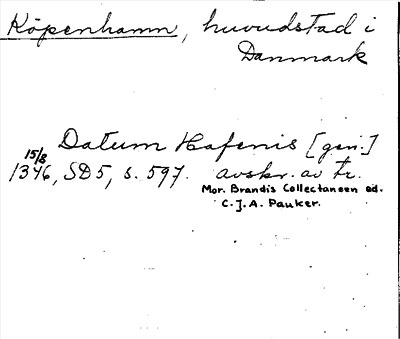 Köpenhamn, huvudstad i
Danmark
Datum Hafenis [gen.]
15/8
1346, SD5, s. 597. avskr. av tr.
Mor. Brandis Collectaneen ed.
C.J.A. Pauker.